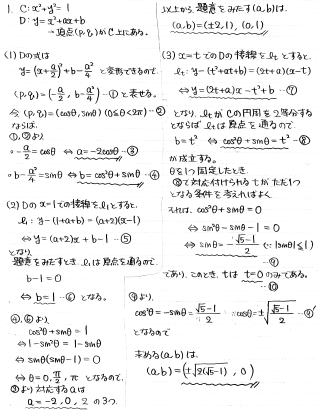 1. C: x²+y²=1
D: y=x²+ax+b
→ 頂点(p,q)がC上にある。
(1) Dの式は
y=(x+a/2)²+b-a²/4 と変形できるので、
(p,q)=(-a/2, b-a²/4)…① と表せる。
今(p,q)=(cosθ, sinθ) (0≦θ<2π)…②
ならば、
①,②より
・-a/2=cosθ ⇔ a=-2cosθ…③
・b-a²/4=sinθ ⇔ b=cos²θ+sinθ…④
(2) Dのx=1での接線をl₁とすると、
l₁: y-(1+a+b)=(a+2)(x-1)
⇔ y=(a+2)x+b-1…⑤
となり、
題意をみたすとき、l₁は原点を通るので、
b-1=0
⇔ b=1…⑥ となる。
④,⑥より、
cos²θ+sinθ=1
⇔ 1-sin²θ=1-sinθ
⇔ sinθ(sinθ-1)=0
⇔ θ=0, π/2, π となるので、
③より対応するaは
a=-2, 0, 2 の3つ。
以上から、題意をみたす(a,b)は、
(a,b)=(±2,1), (0,1)
(3) x=tでのDの接線をlₜとすると、
lₜ: y-(t²+at+b)=(2t+a)(x-t)
⇔ y=(2t+a)x-t²+b…⑦
となり、lₜがCの円周を2等分する
とならば lₜは原点を通るので、
b=t² ⇔ cos²θ+sinθ=t²…⑧
が成立する。
θを1つ固定したとき、
⑧で対応付けられるtがただ1つ
となる条件を考えればよく、
それは、cos²θ+sinθ=0
⇔ sin²θ-sinθ-1=0
⇔ sinθ=-(√5-1)/2 (∵|sinθ|≦1)
…⑨
であり、このとき、tは t=0のみである。
…⑩
⑨より、
cos²θ=-sinθ=(√5-1)/2 ∴cosθ=±√((√5-1)/2)…⑨'
となるので
求める(a,b)は、
(a,b)=(±√(2(√5-1)), 0)